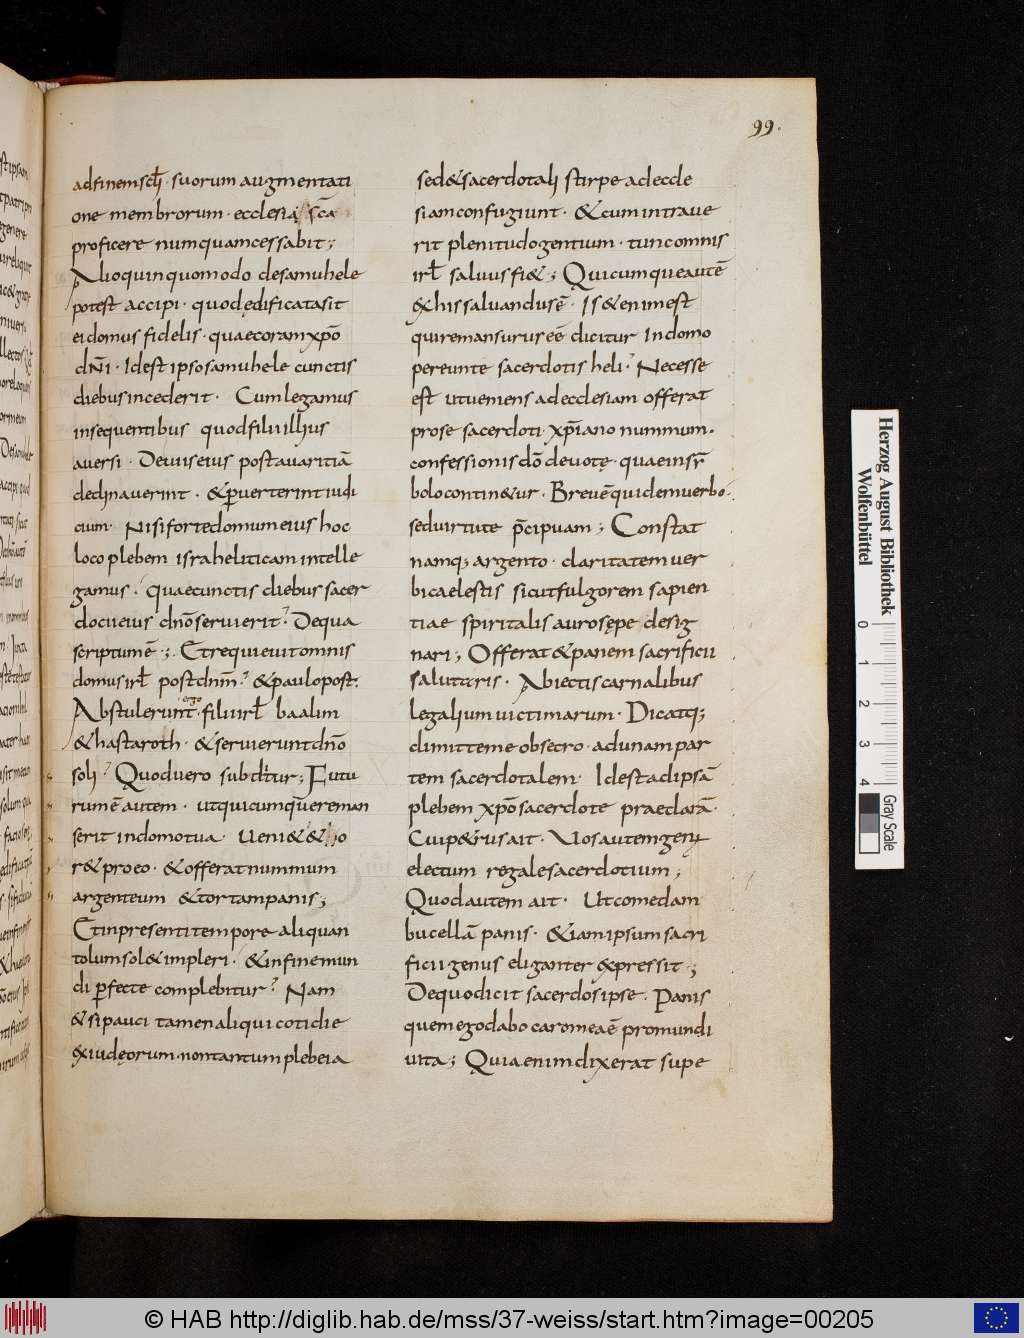 99.
adfinem scłi · suorum augmentati
one membrorum · ecclesia scā
proficere numquam cessabit;
Alioquin quomodo desamuhele
potest accipi · quod ędificata sit
ei domus fidelis · quae coram xp̄o
dn̄i · Idest ipso samuhele cunctis
diebus incederit · Cum legamus
insequentibus quod filii illius
aversi · De viis eius post avaritiā
declinaverint · & p̱verterint iudi
cium · Nisi forte domum eius hoc
loco plebem israheliticam intelle
gamus · quae cunctis diebus sacer
docii eius dn̄o servierit? De qua
scriptum ē ·; Et requievit omnis
domus irł post dn̄m? & paulo post.
Abstulerunt ergo filii irł baalim
& hastaroth · & servierunt dn̄o
soli? Quod vero subditur; Futu
rum ē autem · ut quicumq; reman
serit in domo tua · Veni& & o
r& pro eo · & offerat nummum
argenteum & tortam panis;
Et in presenti tempore aliquan
tolum sol& impleri · & in fine mun
di p̱fecte complebitur? Nam
& si pauci tamen aliqui cotidie
ex iudęorum · non tantum plebeia
sed & sacerdotali stirpe ad eccle
siam confugiunt · & cum intrave
rit plenitudo gentium · tunc omnis
irł salvus fi&; Quicumque autē
ex his salvandus ē · Is & enim est
qui remansurus eē dicitur In domo
pereunte sacerdotis heli? Necesse
est ut veniens ad ecclesiam offerat
pro se sacerdoti · xp̄iano nummum ·
confessionis dō devotę · quae in sȳ
bolo contin&ur · Breve quidem verbo ·
sed virtute p̄cipuam; Constat
namq; argento · claritatem ver
bi caelestis sicut fulgorem sapien
tiae spiritalis auro sępe desig
nari; Offerat & panem sacrificii
salutaris · Abiectis carnalibus
legalium victimarum · Dicatq;
dimitte me obsecro · ad unam par
tem sacerdotalem · Idest ad ipsā
plebem xp̄o sacerdote praeclarā ·
Cui p&rus ait · Vos autem genus
electum regale sacerdotium;
Quod autem ait · Ut comedam
bucellā panis · & iam ipsum sacri
ficii genus eliganter expressit ·;
De quo dicit sacerdos ipse · Panis
quem ego dabo caro mea ē pro mundi
vita; Quia enim dixerat supe
Herzog August Bibliothek
Wolfenbüttel
0 1 2 3 4
Gray Scale
© HAB http://diglib.hab.de/mss/37-weiss/start.htm?image=00205